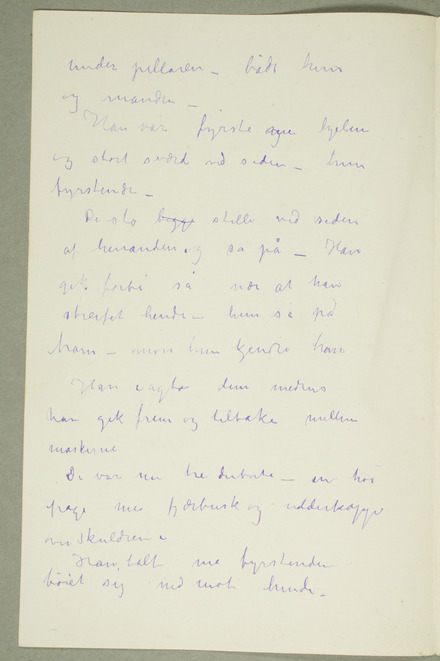 under pillaren – både hun
og manden –
Han var fyrste hjelm
og stort sværd ved siden – hun
fyrstende –
De sto begge stille ved siden
af hinanden og sa på – Han
gik forbi så nær at han
streifet hende – hun så på
ham – mon hun kjendte ham
Han vagta dem medens
han gik frem og tilbake mellem
maskerne
De var nu tre derborte – en høi
page med fjærbusk og ridderkappe
over skuldren.
Han talt med fyrstenden
bøiet sig ned mot hende –